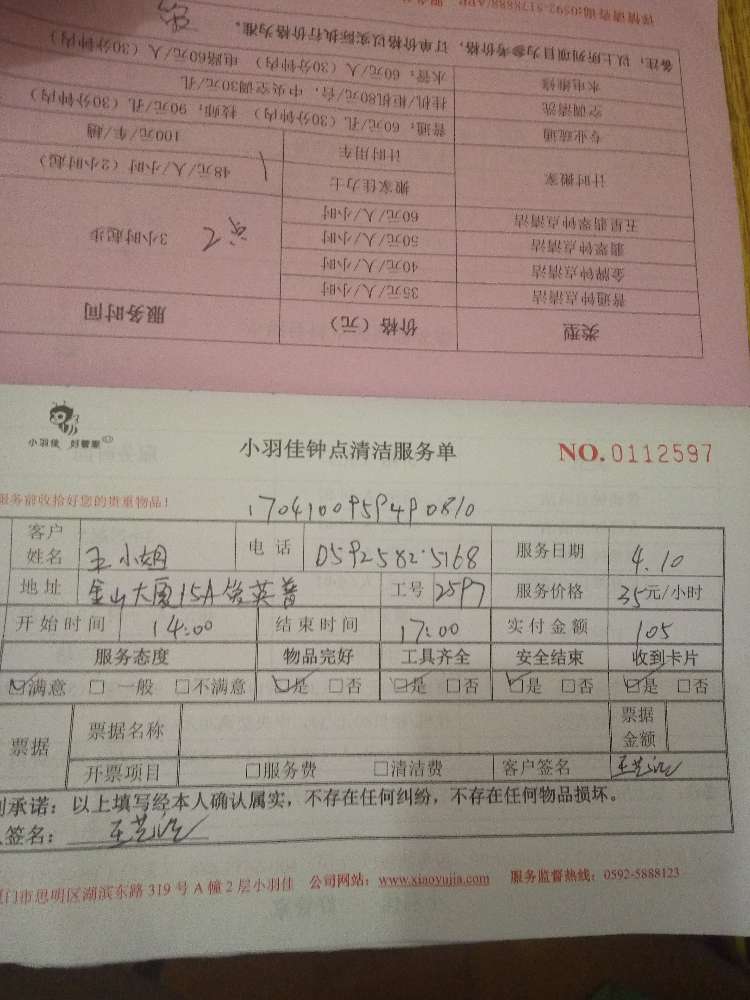 详情请咨询:0592-5178888/APP
备注:以上所列项目为参考价格,订单价格以实际执行价格为准。
水电维修 水管:60元/人(30分钟内) 电路60元/人(30分钟内)
空调清洗 挂机柜机80元/台,中央空调30元/孔
专业疏通 普通:60元/孔(30分钟内) 技师:90元/孔(30分钟内)
计时搬家 计时用车 100元/车/趟
搬家佳力士 48元/人/小时(2小时起)
五星翡翠钟点清洁 60元/人/小时
翡翠钟点清洁 50元/人/小时 3小时起步
金牌钟点清洁 40元/人/小时
普通钟点清洁 35元/人/小时
类型 价格(元) 服务时间
小羽佳 好管家
小羽佳钟点清洁服务单 NO.0112597
服务前收拾好您的贵重物品!
1704100959490810
客户姓名 王小姐 电话 0592 582.5168 服务日期 4.10
地址 金山大厦15A 英普 工号 2597 服务价格 35元/小时
开始时间 14:00 结束时间 17:00 实付金额 105
服务态度 物品完好 工具齐全 安全结束 收到卡片
满意 一般 不满意 是 否 是 否 是 否 是 否
票据 票据名称 票据金额
开票项目 服务费 清洁费 客户签名
承诺:以上填写经本人确认属实,不存在任何纠纷,不存在任何物品损坏。
签名:
门市思明区湖滨东路319号A幢2层小羽佳 公司网站:www.xiaoyujia.com 服务监督热线:0592-5888123